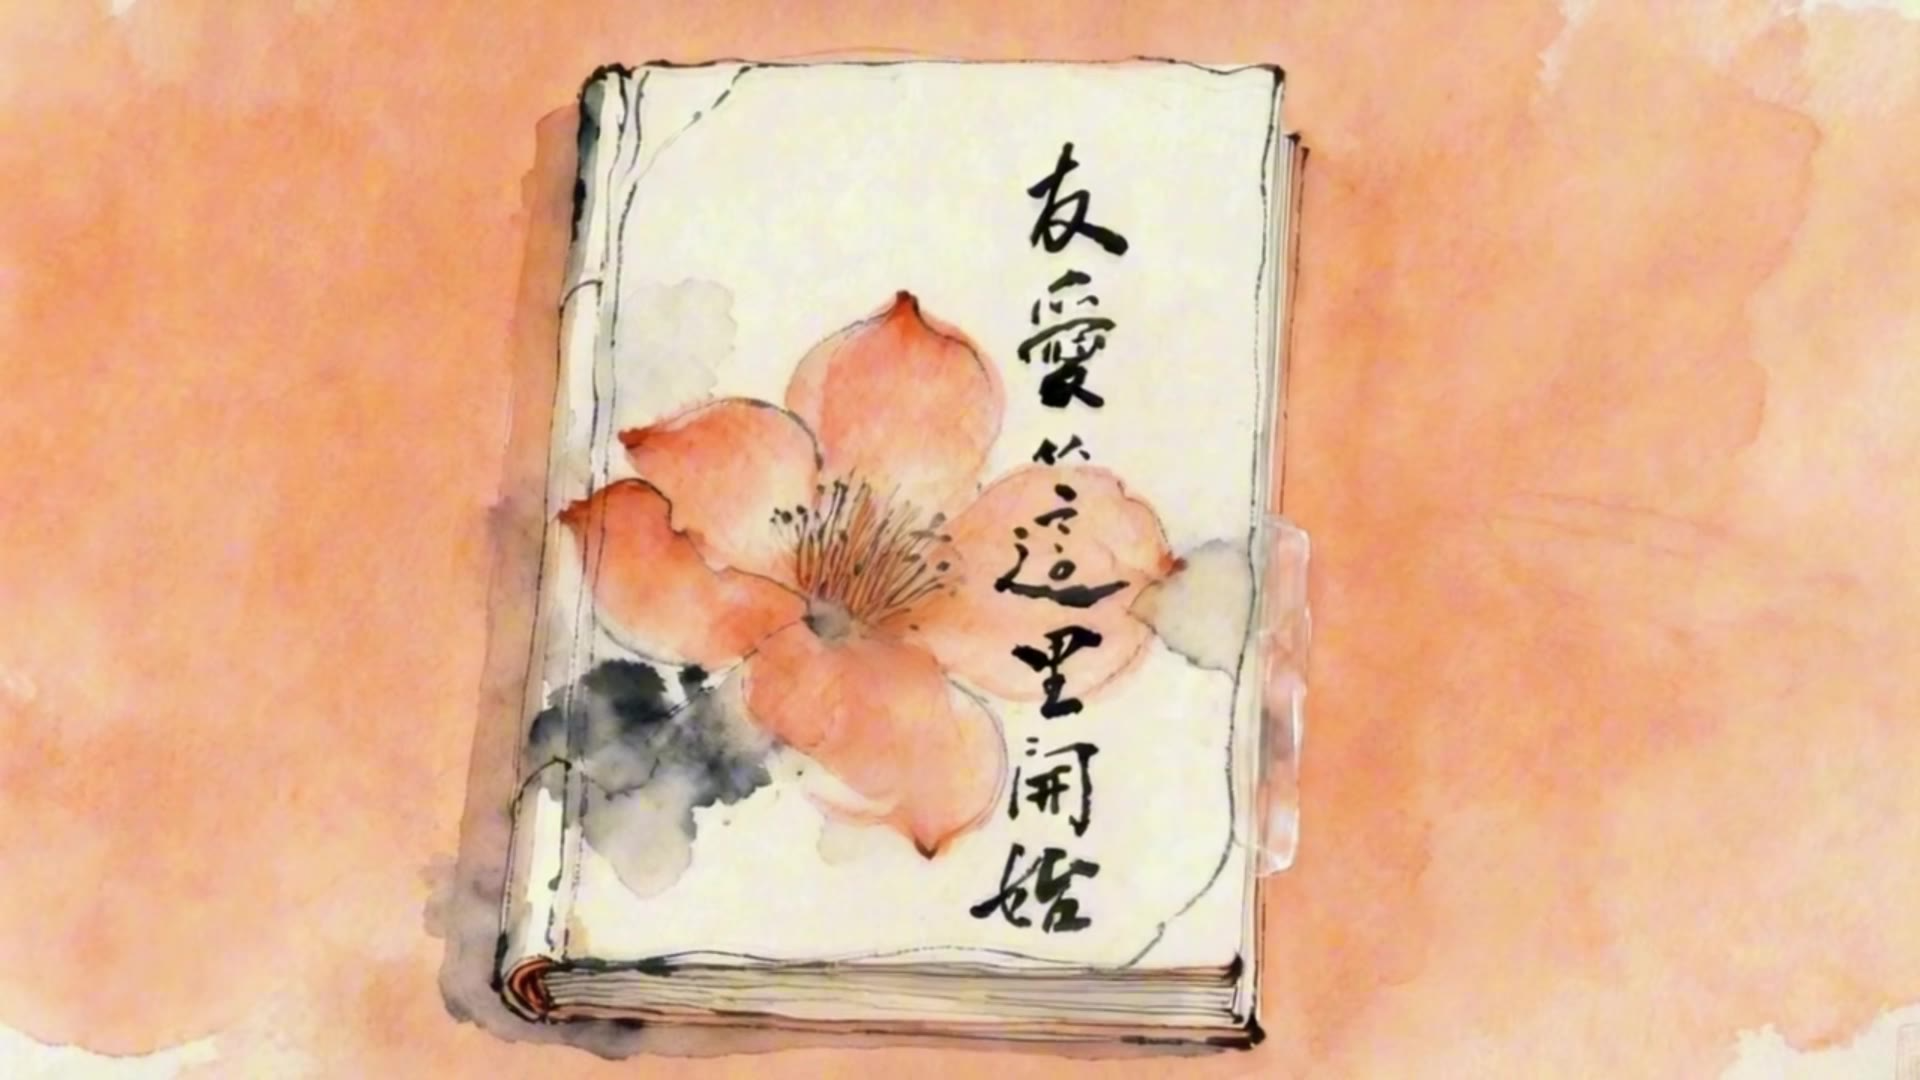 友愛从這里開始